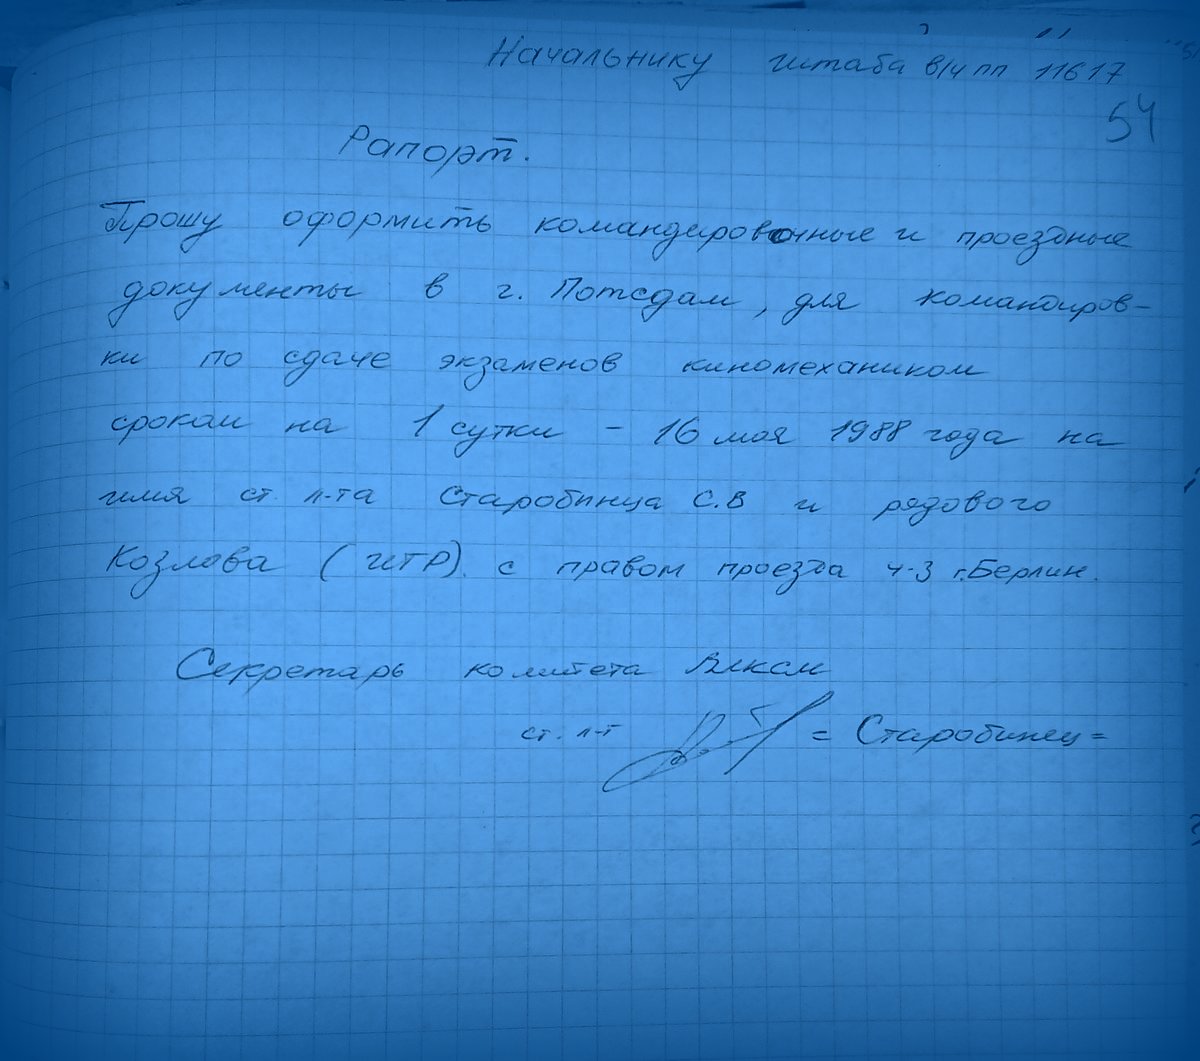 Начальнику штаба в/ч пп 11617
54
Рапорт.
Прошу оформить командировочные и проездные
документы в г. Потсдам, для командиров-
ки по сдаче экзаменов киномехаником
сроком на 1 сутки – 16 мая 1988 года на
имя ст. л-та Старобинца С.В и рядового
Козлова (ШТР). с правом проезда ч-з г.Берлин.
Секретарь комитета ВЛКСМ
ст. л-т = Старобинец =